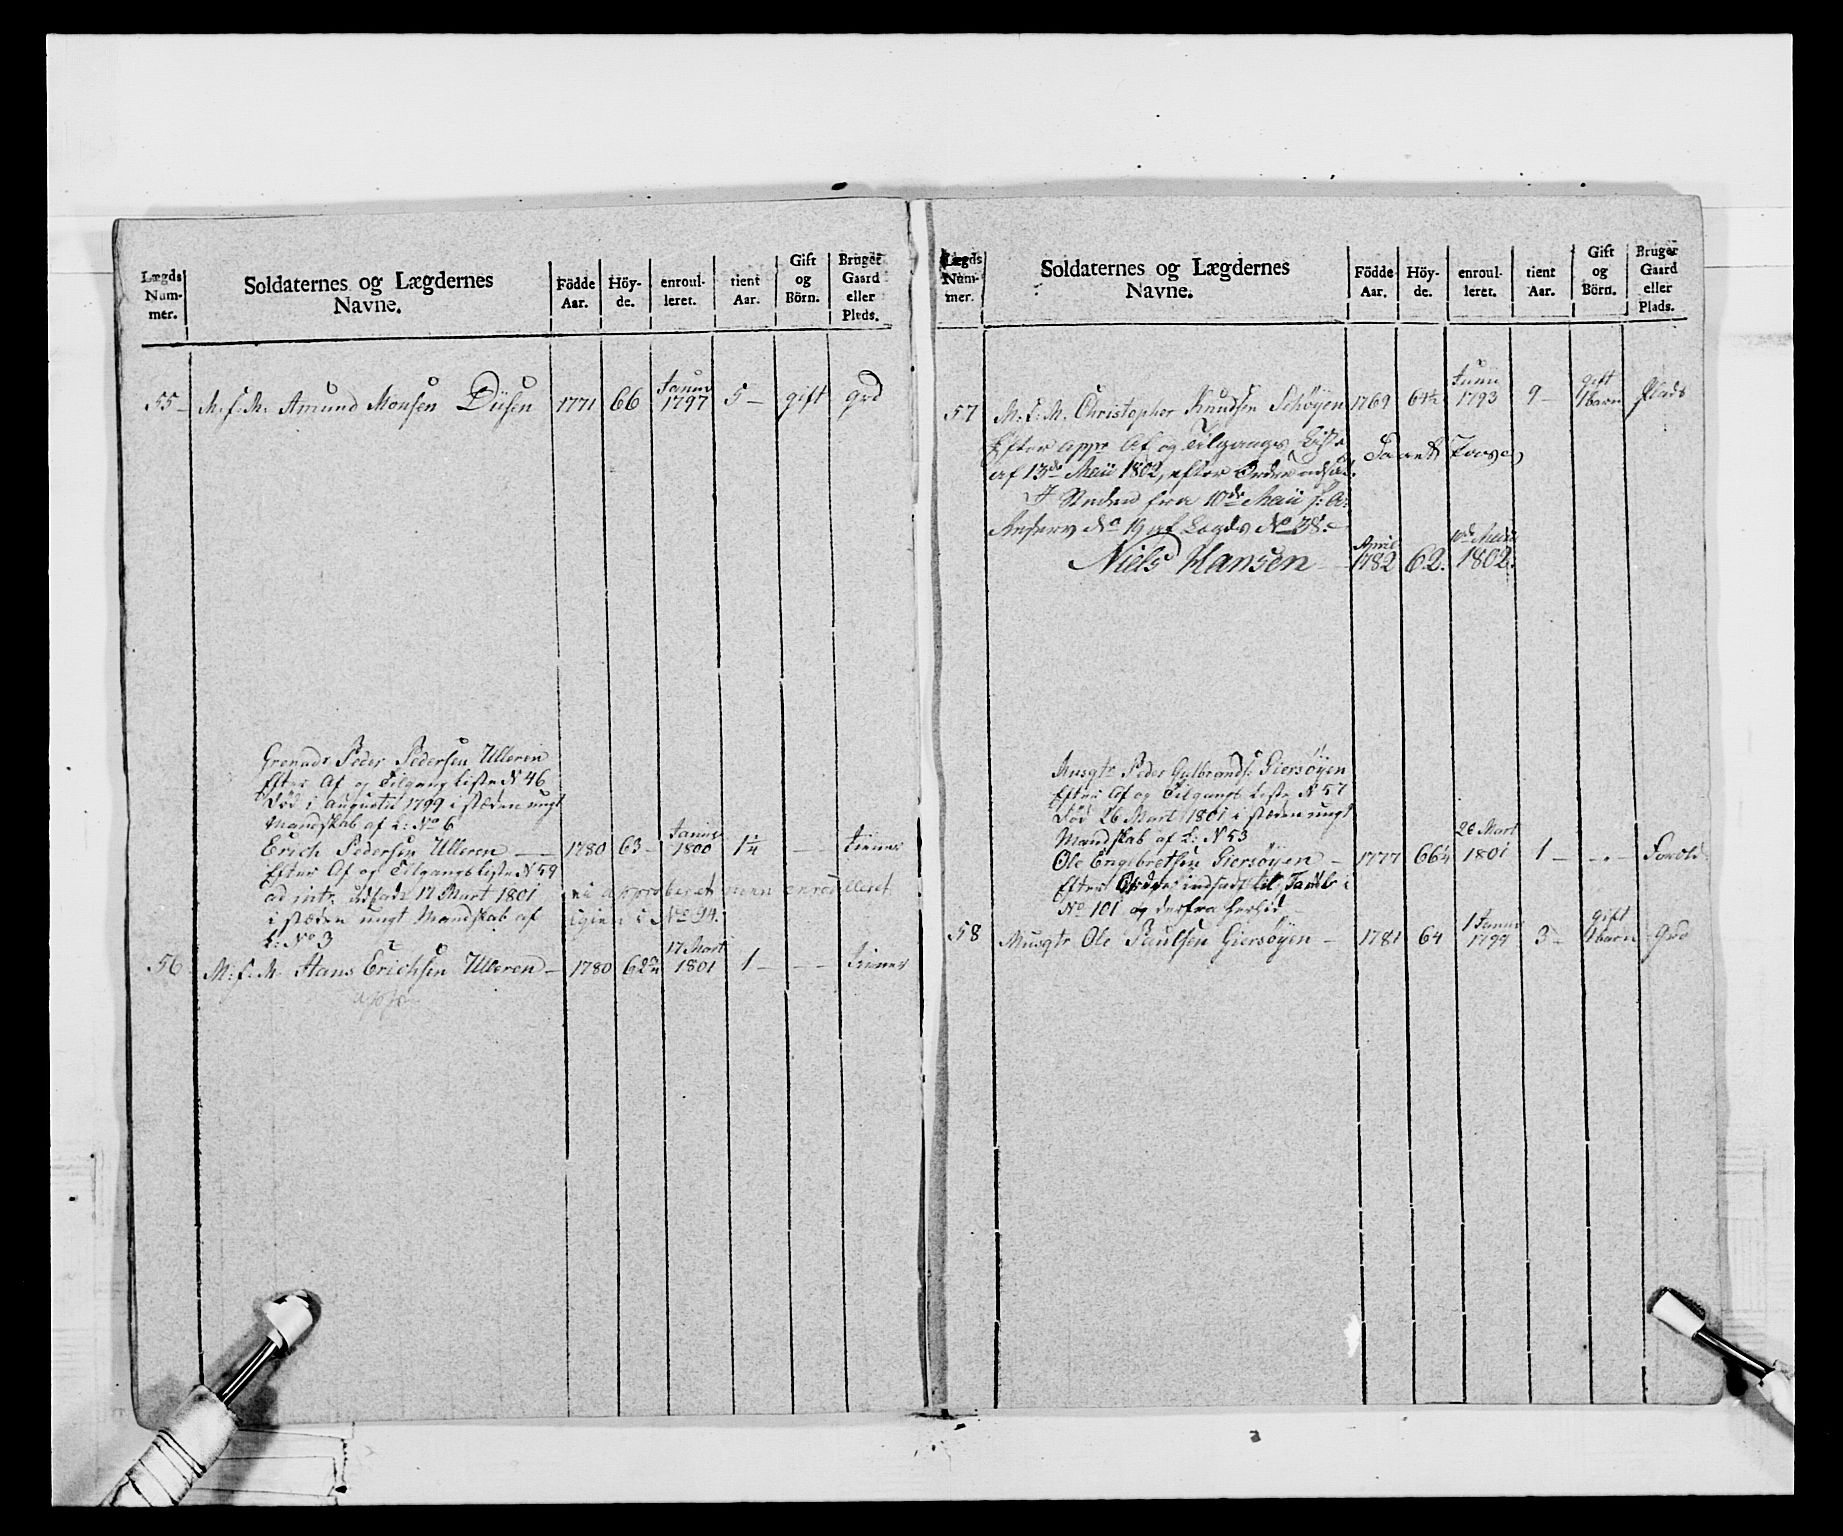 Lægds Num-mer. | Soldaternes og Lægdernes Navne. | Födde Aar. | Höy-de. | enroul-leret. | tient Aar. | Gift og Börn. | Bruger Gaard eller Plads.
55 M.f.M. Amund Monsen Diisen 1771 66 Janur 1797 5 — gift grd
Grenadr Peder Pedersen Ulleren
Efter Af og Tilgang Liste N 46
Död i Augustii 1799 i stæden ungt
Mandskab af L: No 6
Erich Pedersen Ulleren — 1780 63 — Janur 1800 1¼ — tiener
Efter Af og Tilgangsliste N 59
ad intr. udsadt 17 Mart 1801 approberet men enroulleret
i stæden ungt Mandskab af igien i No 94.
L: No 3
56 M.f.M. Hans Erichsen Ulleren — 1780 62 17 Mart 1801 1 — — tiener
appr
Lægds Num-mer. | Soldaternes og Lægdernes Navne. | Födde Aar. | Höy-de. | enroul-leret. | tient Aar. | Gift og Börn. | Bruger Gaard eller Plads.
57 M.f.M. Christopher Knudsen Schøyen 1769 64½ Junii 1793 9 — gift 1 barn Plads
Efter appr Af og Tilgangs Liste
af 13de Maii 1802, efter Ordre udsat.
I Steden fra 10de Maii s: A:
Reserv No 19 af Lægds No 38. —
Niels Hansen — April 1782 62. 10de Maii 1802.
Musqtr Peder Gulbrands: Giersöyen
Efter Af og Tilgangs Liste N 57
Död 26 Mart 1801 i stæden ungt
Mandskab af L: N 53
Ole Engebretsen Giersöyen — 1777 66¼ 26 Mart 1801 1 —
Efter Ordre indsadt til Tamb: i
No 101 og derfra herhid —
58 Musqtr Ole Paulsen Giersöyen — 1781 64 1 Janur 1799 3 — gift 1 barn Grd